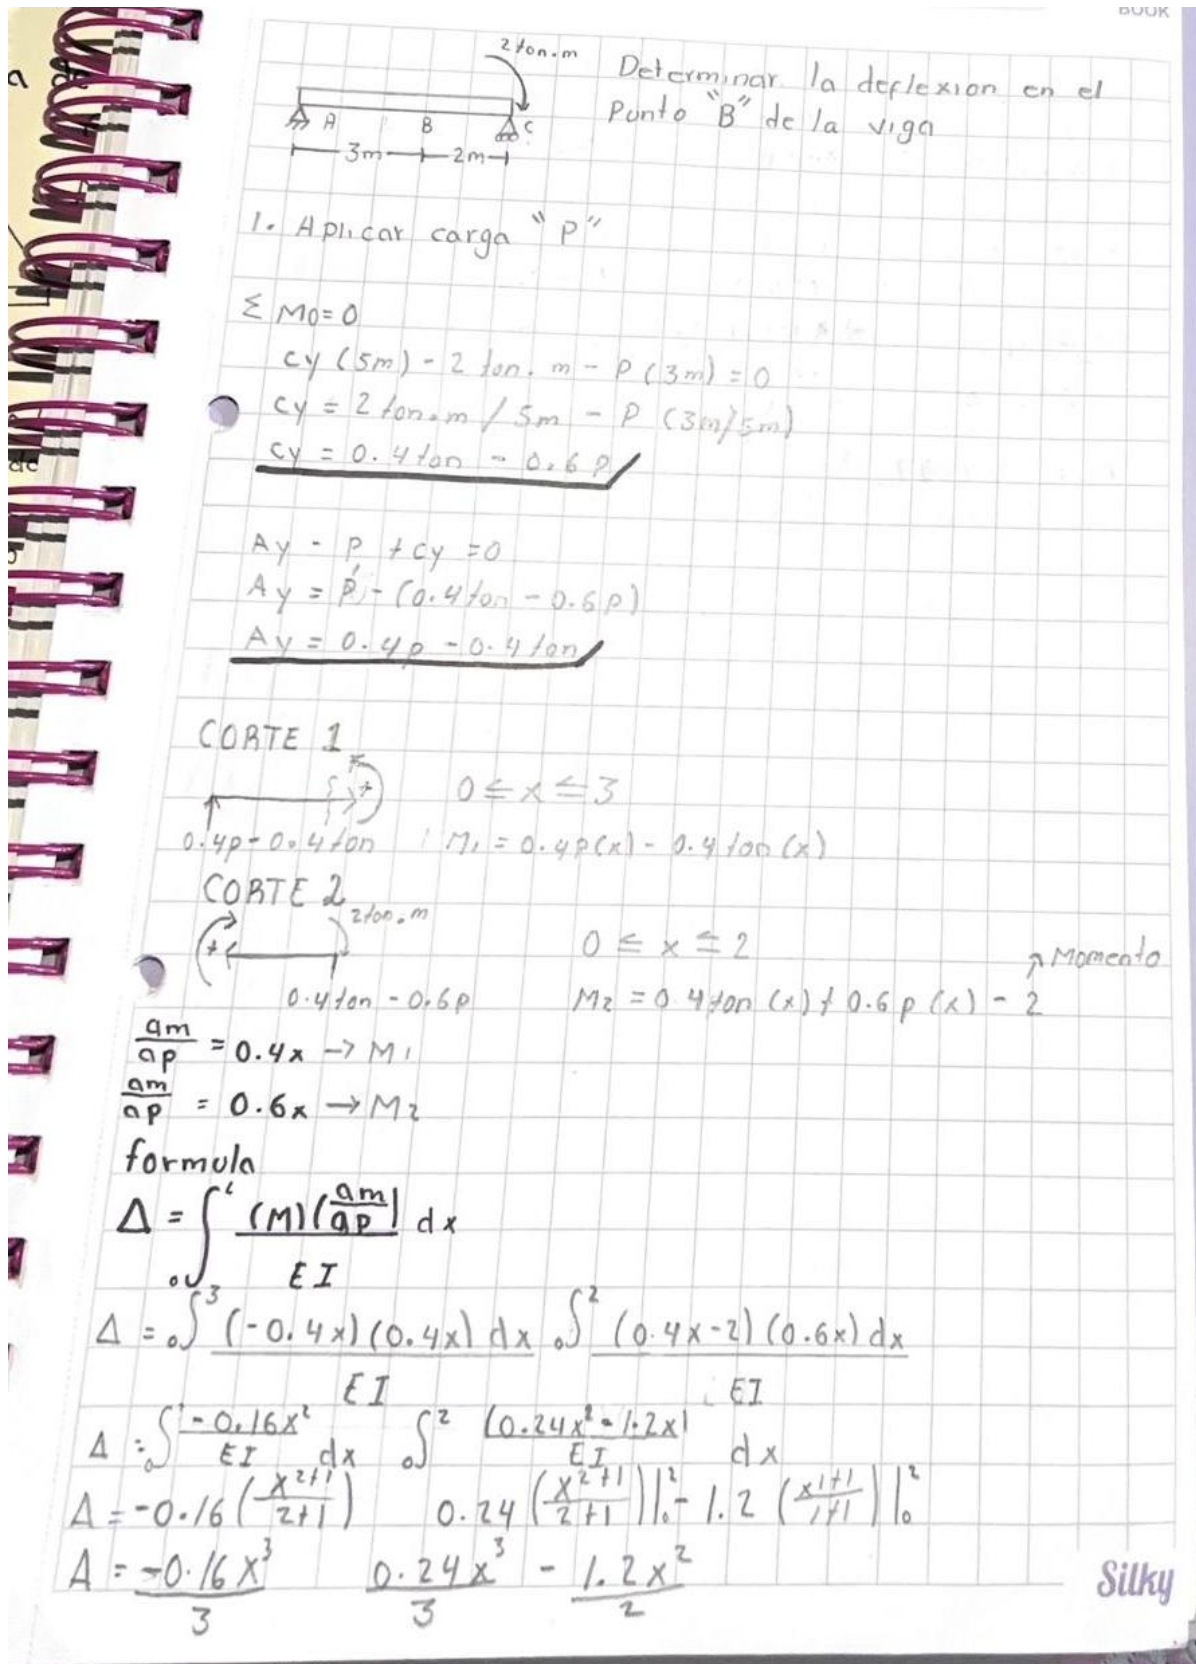 BOOK
2 ton.m
Determinar la deflexion en el
Punto "B" de la viga
A B C
3m 2m
1. Aplicar carga "P"
Σ M0=0
cy (5m) - 2 ton. m - P (3m) = 0
cy = 2 ton.m / 5m - P (3m/5m)
cy = 0.4 ton - 0.6 P
Ay - P + cy = 0
Ay = P - (0.4 ton - 0.6P)
Ay = 0.4p - 0.4 ton
CORTE 1
0 ≤ x ≤ 3
0.4p - 0.4 ton M1 = 0.4P(x) - 0.4 ton (x)
CORTE 2
2 ton.m
0 ≤ x ≤ 2
Momento
0.4 ton - 0.6p M2 = 0.4 ton (x) + 0.6 p (x) - 2
am/ap = 0.4x → M1
am/ap = 0.6x → M2
formula
Δ = ∫ (M)(am/ap) dx
EI
Δ = 0∫3 (-0.4x)(0.4x) dx 0∫2 (0.4x-2)(0.6x) dx
EI EI
Δ = 0∫ -0.16x²/EI dx 0∫2 (0.24x² - 1.2x)/EI dx
Δ = -0.16 (x2+1/2+1) 0.24 (x2+1/2+1)|02 - 1.2 (x1+1/1+1)|02
Δ = -0.16x³/3 0.24x³/3 - 1.2x²/2
Silky